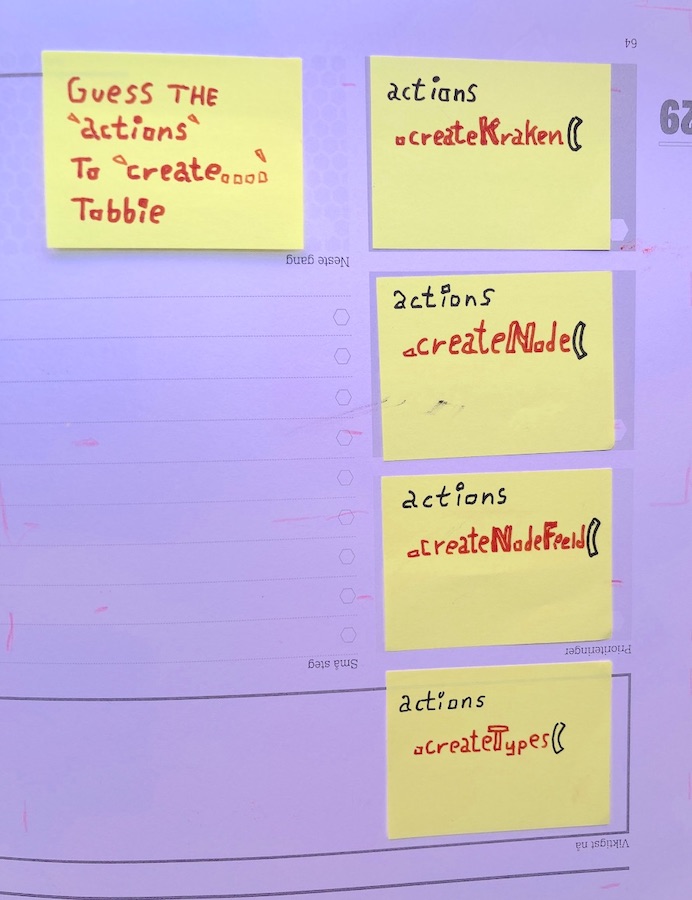 Guess THE
`actions`
To `create....`
Tabbie
actions
.createKraken(
actions
.createNode(
actions
.createNodeFeeld(
actions
.createTypes(
64
29
Neste gang
Små steg
Prioriteringer
Viktigst nå